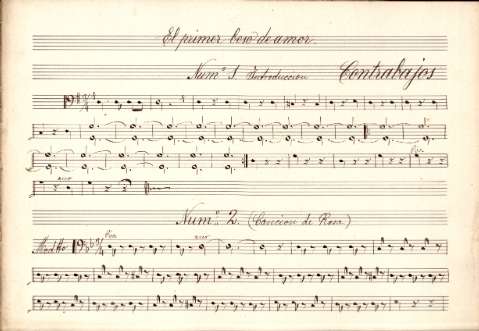 El primer beso de amor.
Num.º 1. Introduccion Contrabajos
arco
Num.º 2. (Cancion de Rosa)
Modtto
arco